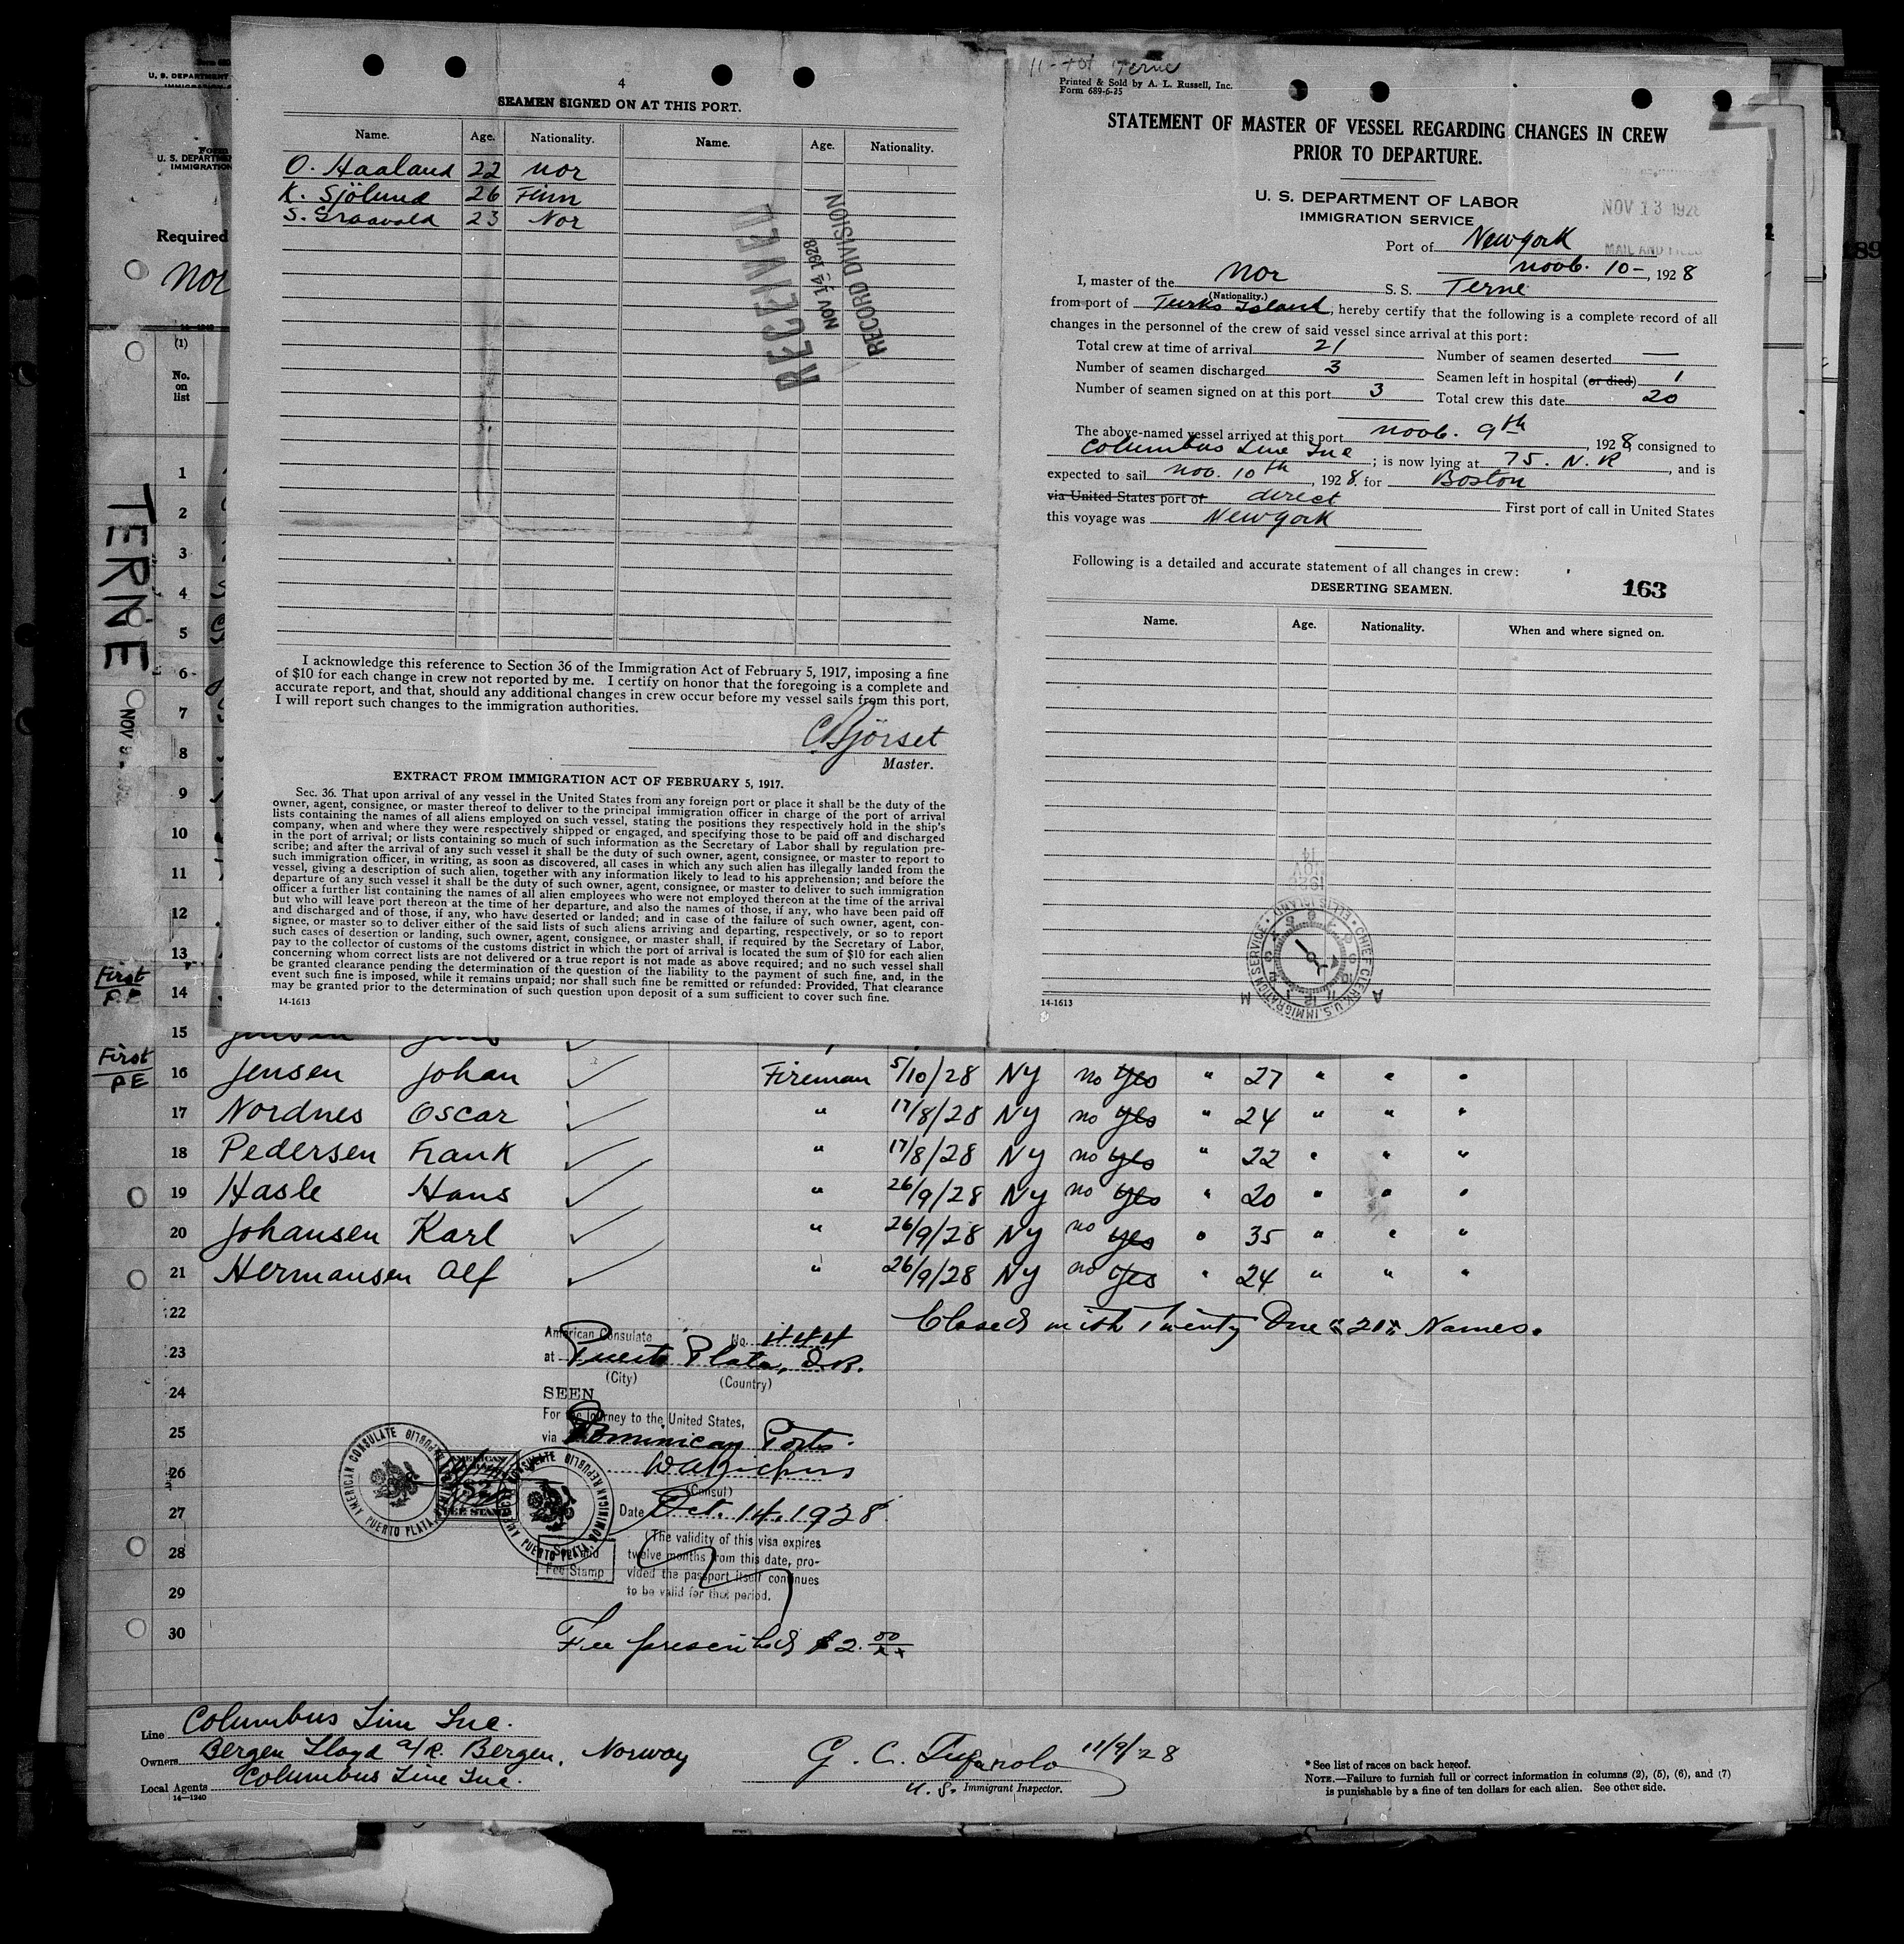 4
SEAMEN SIGNED ON AT THIS PORT.
Name. Age. Nationality. Name. Age. Nationality.
O. Haaland 22 Nor
K. Sjölund 26 Finn
S. Graavold 23 Nor
RECEIVED
NOV 14 1928
RECORD DIVISION
I acknowledge this reference to Section 36 of the Immigration Act of February 5, 1917, imposing a fine
of $10 for each change in crew not reported by me. I certify on honor that the foregoing is a complete and
accurate report, and that, should any additional changes in crew occur before my vessel sails from this port,
I will report such changes to the immigration authorities.
C Björset
Master.
EXTRACT FROM IMMIGRATION ACT OF FEBRUARY 5, 1917.
Sec. 36. That upon arrival of any vessel in the United States from any foreign port or place it shall be the duty of the
owner, agent, consignee, or master thereof to deliver to the principal immigration officer in charge of the port of arrival
lists containing the names of all aliens employed on such vessel, stating the positions they respectively hold in the ship's
company, when and where they were respectively shipped or engaged, and specifying those to be paid off and discharged
in the port of arrival; or lists containing so much of such information as the Secretary of Labor shall by regulation pre-
scribe; and after the arrival of any such vessel it shall be the duty of such owner, agent, consignee, or master to report to
such immigration officer, in writing, as soon as discovered, all cases in which any such alien has illegally landed from the
vessel, giving a description of such alien, together with any information likely to lead to his apprehension; and before the
departure of any such vessel it shall be the duty of such owner, agent, consignee, or master to deliver to such immigration
officer a further list containing the names of all alien employees who were not employed thereon at the time of the arrival
but who will leave port thereon at the time of her departure, and also the names of those, if any, who have been paid off
and discharged and of those, if any, who have deserted or landed; and in case of the failure of such owner, agent, con-
signee, or master so to deliver either of the said lists of such aliens arriving and departing, respectively, or so to report
such cases of desertion or landing, such owner, agent, consignee, or master shall, if required by the Secretary of Labor,
pay to the collector of customs of the customs district in which the port of arrival is located the sum of $10 for each alien
concerning whom correct lists are not delivered or a true report is not made as above required; and no such vessel shall
be granted clearance pending the determination of the question of the liability to the payment of such fine, and, in the
event such fine is imposed, while it remains unpaid; nor shall such fine be remitted or refunded: Provided, That clearance
may be granted prior to the determination of such question upon deposit of a sum sufficient to cover such fine.
14-1613
Terne
Printed & Sold by A. L. Russell, Inc.
Form 689-6-25
STATEMENT OF MASTER OF VESSEL REGARDING CHANGES IN CREW
PRIOR TO DEPARTURE.
U. S. DEPARTMENT OF LABOR
IMMIGRATION SERVICE
NOV 13 1928
MAIL AND FILES
Port of New york
novb. 10-, 1928
I, master of the Nor S. S. Terne
(Nationality.)
from port of Turks Island, hereby certify that the following is a complete record of all
changes in the personnel of the crew of said vessel since arrival at this port:
Total crew at time of arrival 21 Number of seamen deserted —
Number of seamen discharged 3 Seamen left in hospital (or died) 1
Number of seamen signed on at this port 3 Total crew this date 20
The above-named vessel arrived at this port novb. 9th, 1928, consigned to
Columbus Line Inc; is now lying at 75. N. R, and is
expected to sail nov. 10th, 1928. for Boston
via United States port of direct First port of call in United States
this voyage was New york
Following is a detailed and accurate statement of all changes in crew:
163
DESERTING SEAMEN.
Name. Age. Nationality. When and where signed on.
CHIEF CLERK, U.S. IMMIGRATION SERVICE ELLIS ISLAND
14-1613
U. S. DEPARTMENT
Form
U. S. DEPARTMEN
IMMIGRATION
Required
Nor
14-1240
(1)
No.
on
list
TERNE
1
2
3
4
5
6
7
8
9
10
11
12
13
First
PE 14
15
First
PE 16 Jensen Johan Fireman 5/10/28 NY no yes " 27 " " "
17 Nordnes Oscar " 17/8/28 NY no yes " 24 " " "
18 Pedersen Frank " 17/8/28 NY no yes " 22 " " "
19 Hasle Hans " 26/9/28 NY no yes " 20 " " "
20 Johansen Karl " 26/9/28 NY no yes " 35 " " "
21 Hermansen Alf " 26/9/28 NY no yes " 24 " " "
22 Closed with Twenty One "21" Names.
American Consulate No. 444
23 at Puerto Plata, D.R.
(City) (Country)
24 SEEN
For the journey to the United States,
25 via Dominican Ports.
26
(Consul)
27 Date Oct. 14, 1928
(The validity of this visa expires
28 twelve months from this date, pro-
vided the passport itself continues
29 to be valid for that period.
AMERICAN CONSULATE PUERTO PLATA
Fee Stamp
30 Fee prescribed $2.00
Line Columbus Line Inc.
Owners Bergen Lloyd a/R. Bergen, Norway
Local Agents Columbus Line Inc.
14-1240
G. C. 11/9/28
U. S. Immigrant Inspector.
* See list of races on back hereof.
NOTE.—Failure to furnish full or correct information in columns (2), (5), (6), and (7)
is punishable by a fine of ten dollars for each alien. See other side.